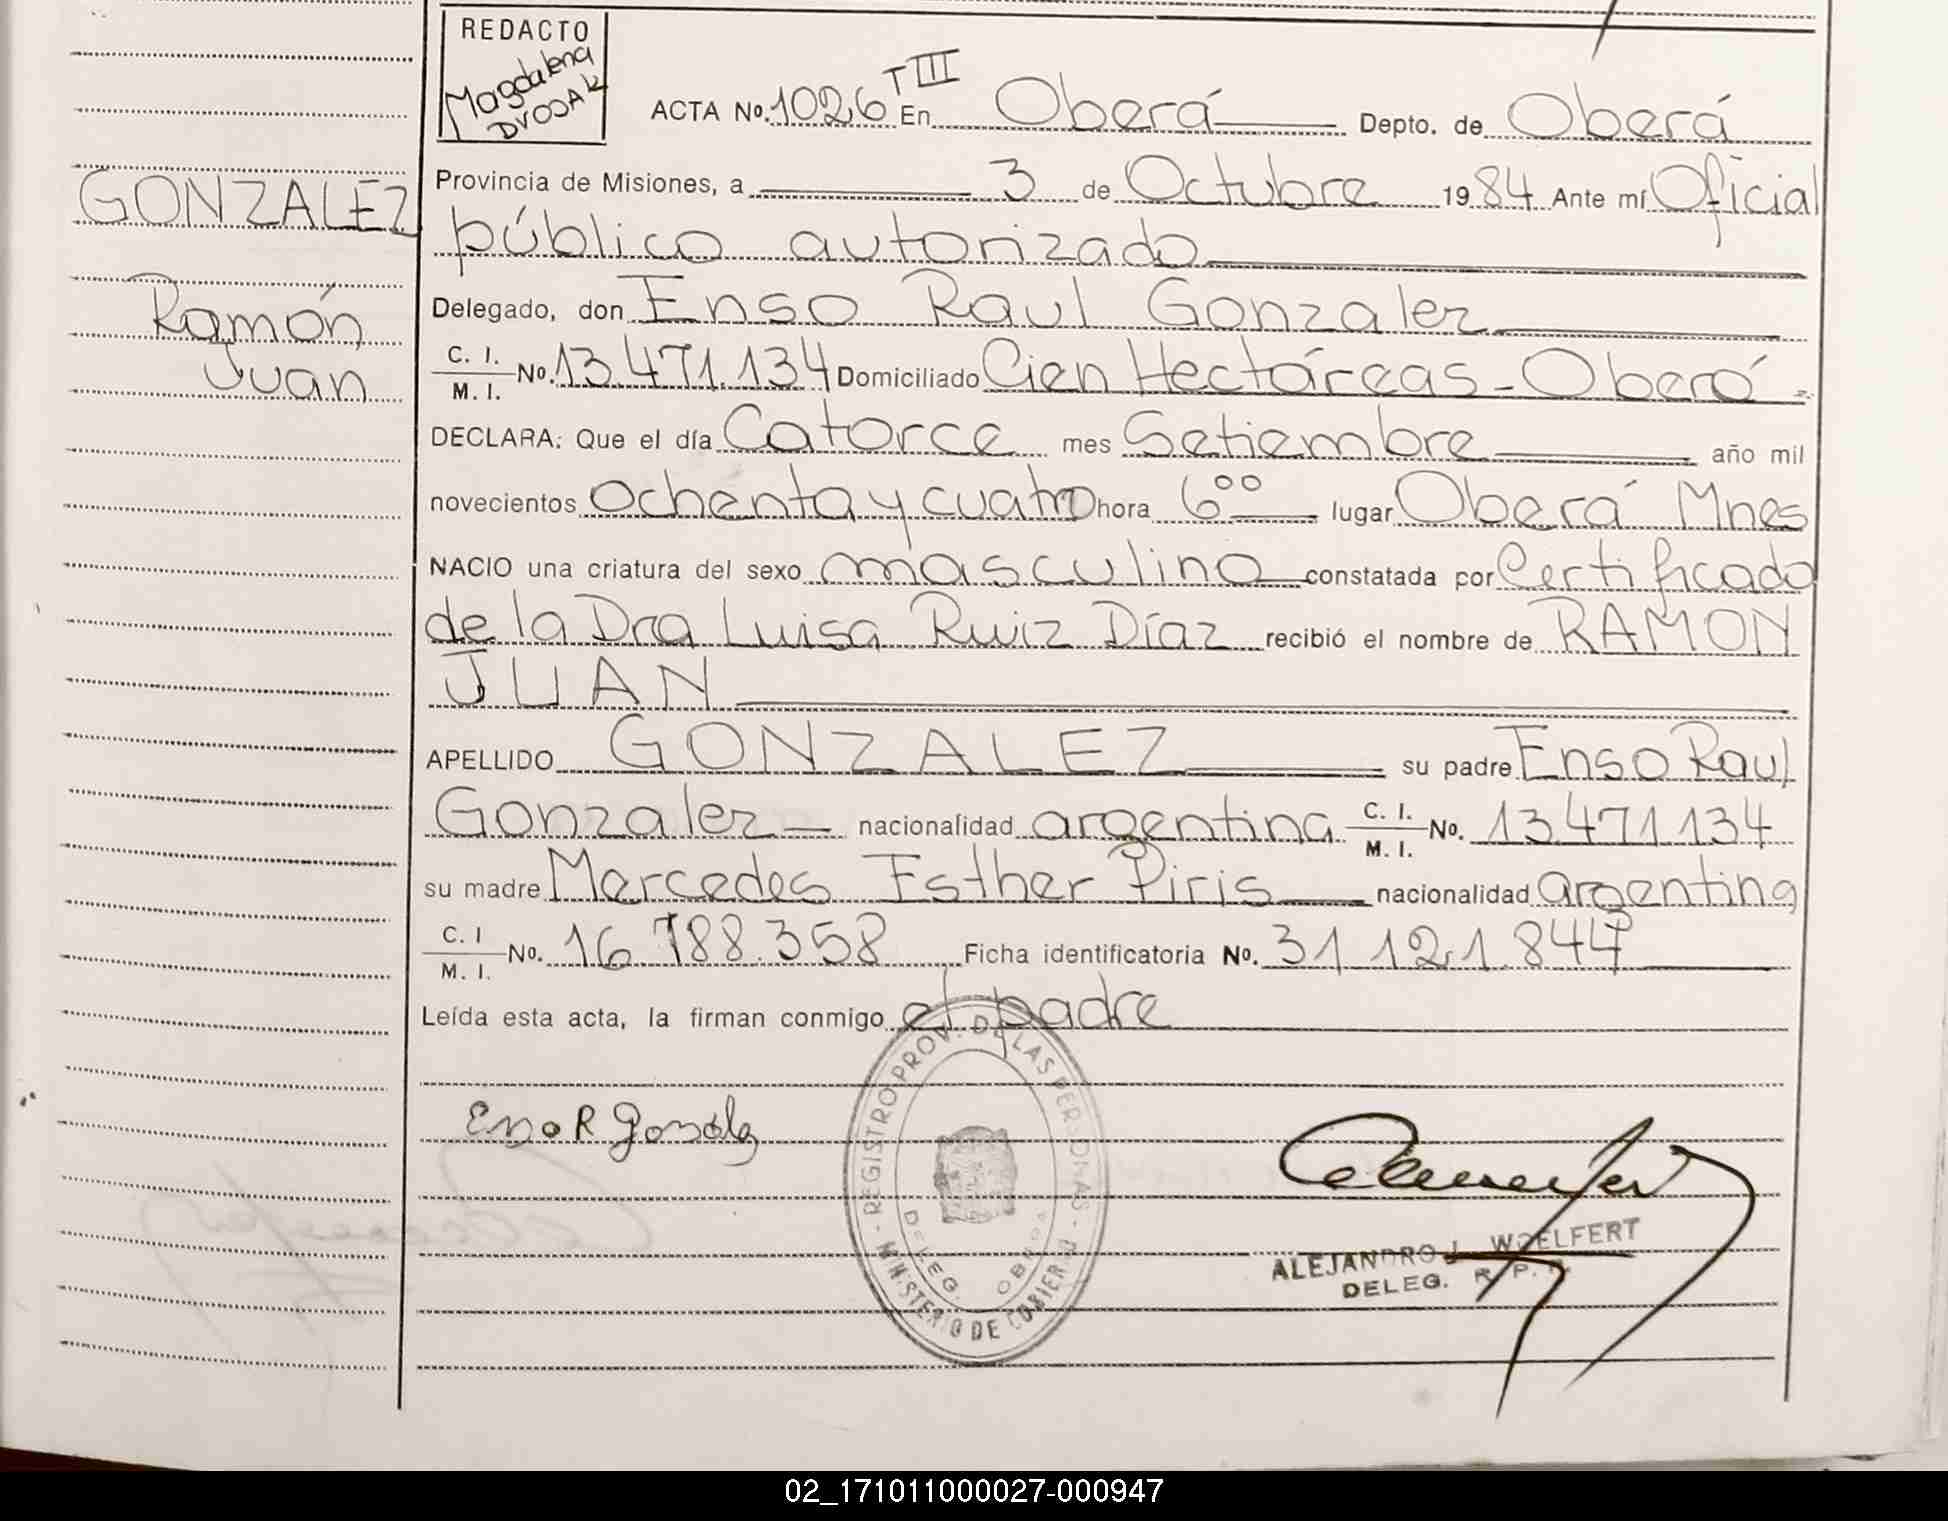 REDACTO
Magdalena
DVOSAK
ACTA No. 1026 T III En Oberá Depto. de Oberá
GONZALEZ
Ramón
Juan
Provincia de Misiones, a 3 de Octubre 1984 Ante mí Oficial
público autorizado
Delegado, don Enso Raul Gonzalez
C. I. M. I. No. 13.471.134 Domiciliado Cien Hectáreas - Oberá -
DECLARA: Que el día Catorce mes Setiembre año mil
novecientos ochenta y cuatro hora 6 00 lugar Oberá Mnes
NACIO una criatura del sexo masculino constatada por Certificado
de la Dra Luisa Ruiz Díaz recibió el nombre de RAMON
JUAN
APELLIDO GONZALEZ su padre Enso Raul
Gonzalez nacionalidad argentina C. I. M. I. No. 13.471.134
su madre Mercedes Esther Piris nacionalidad argentina
C. I M. I. No. 16.788.358 Ficha identificatoria No. 31.121.844
Leída esta acta, la firman conmigo el padre
Enso R Gonzalez
REGISTRO PROV. DE LAS PERSONAS - MINISTERIO DE GOBIERNO
DELEG. OBERA
ALEJANDRO J. WOELFERT
DELEG. R. P.
02_171011000027-000947